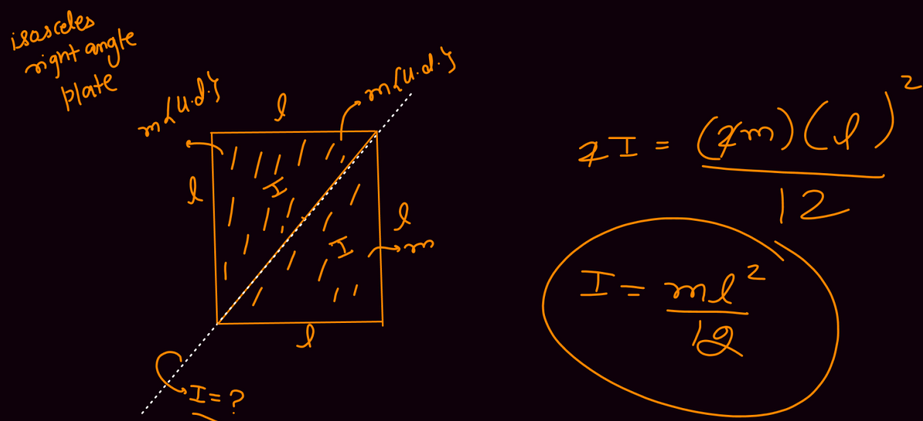 isosceles
right angle
plate
m{u.d.}
l
m{u.d.}
l
I
I
l
m
l
I = ?
2I = (2m)(l)²
12
I = ml²
12